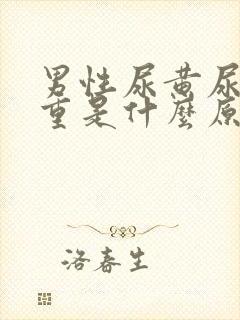 男性尿黄尿
重是什麼原
洛春生